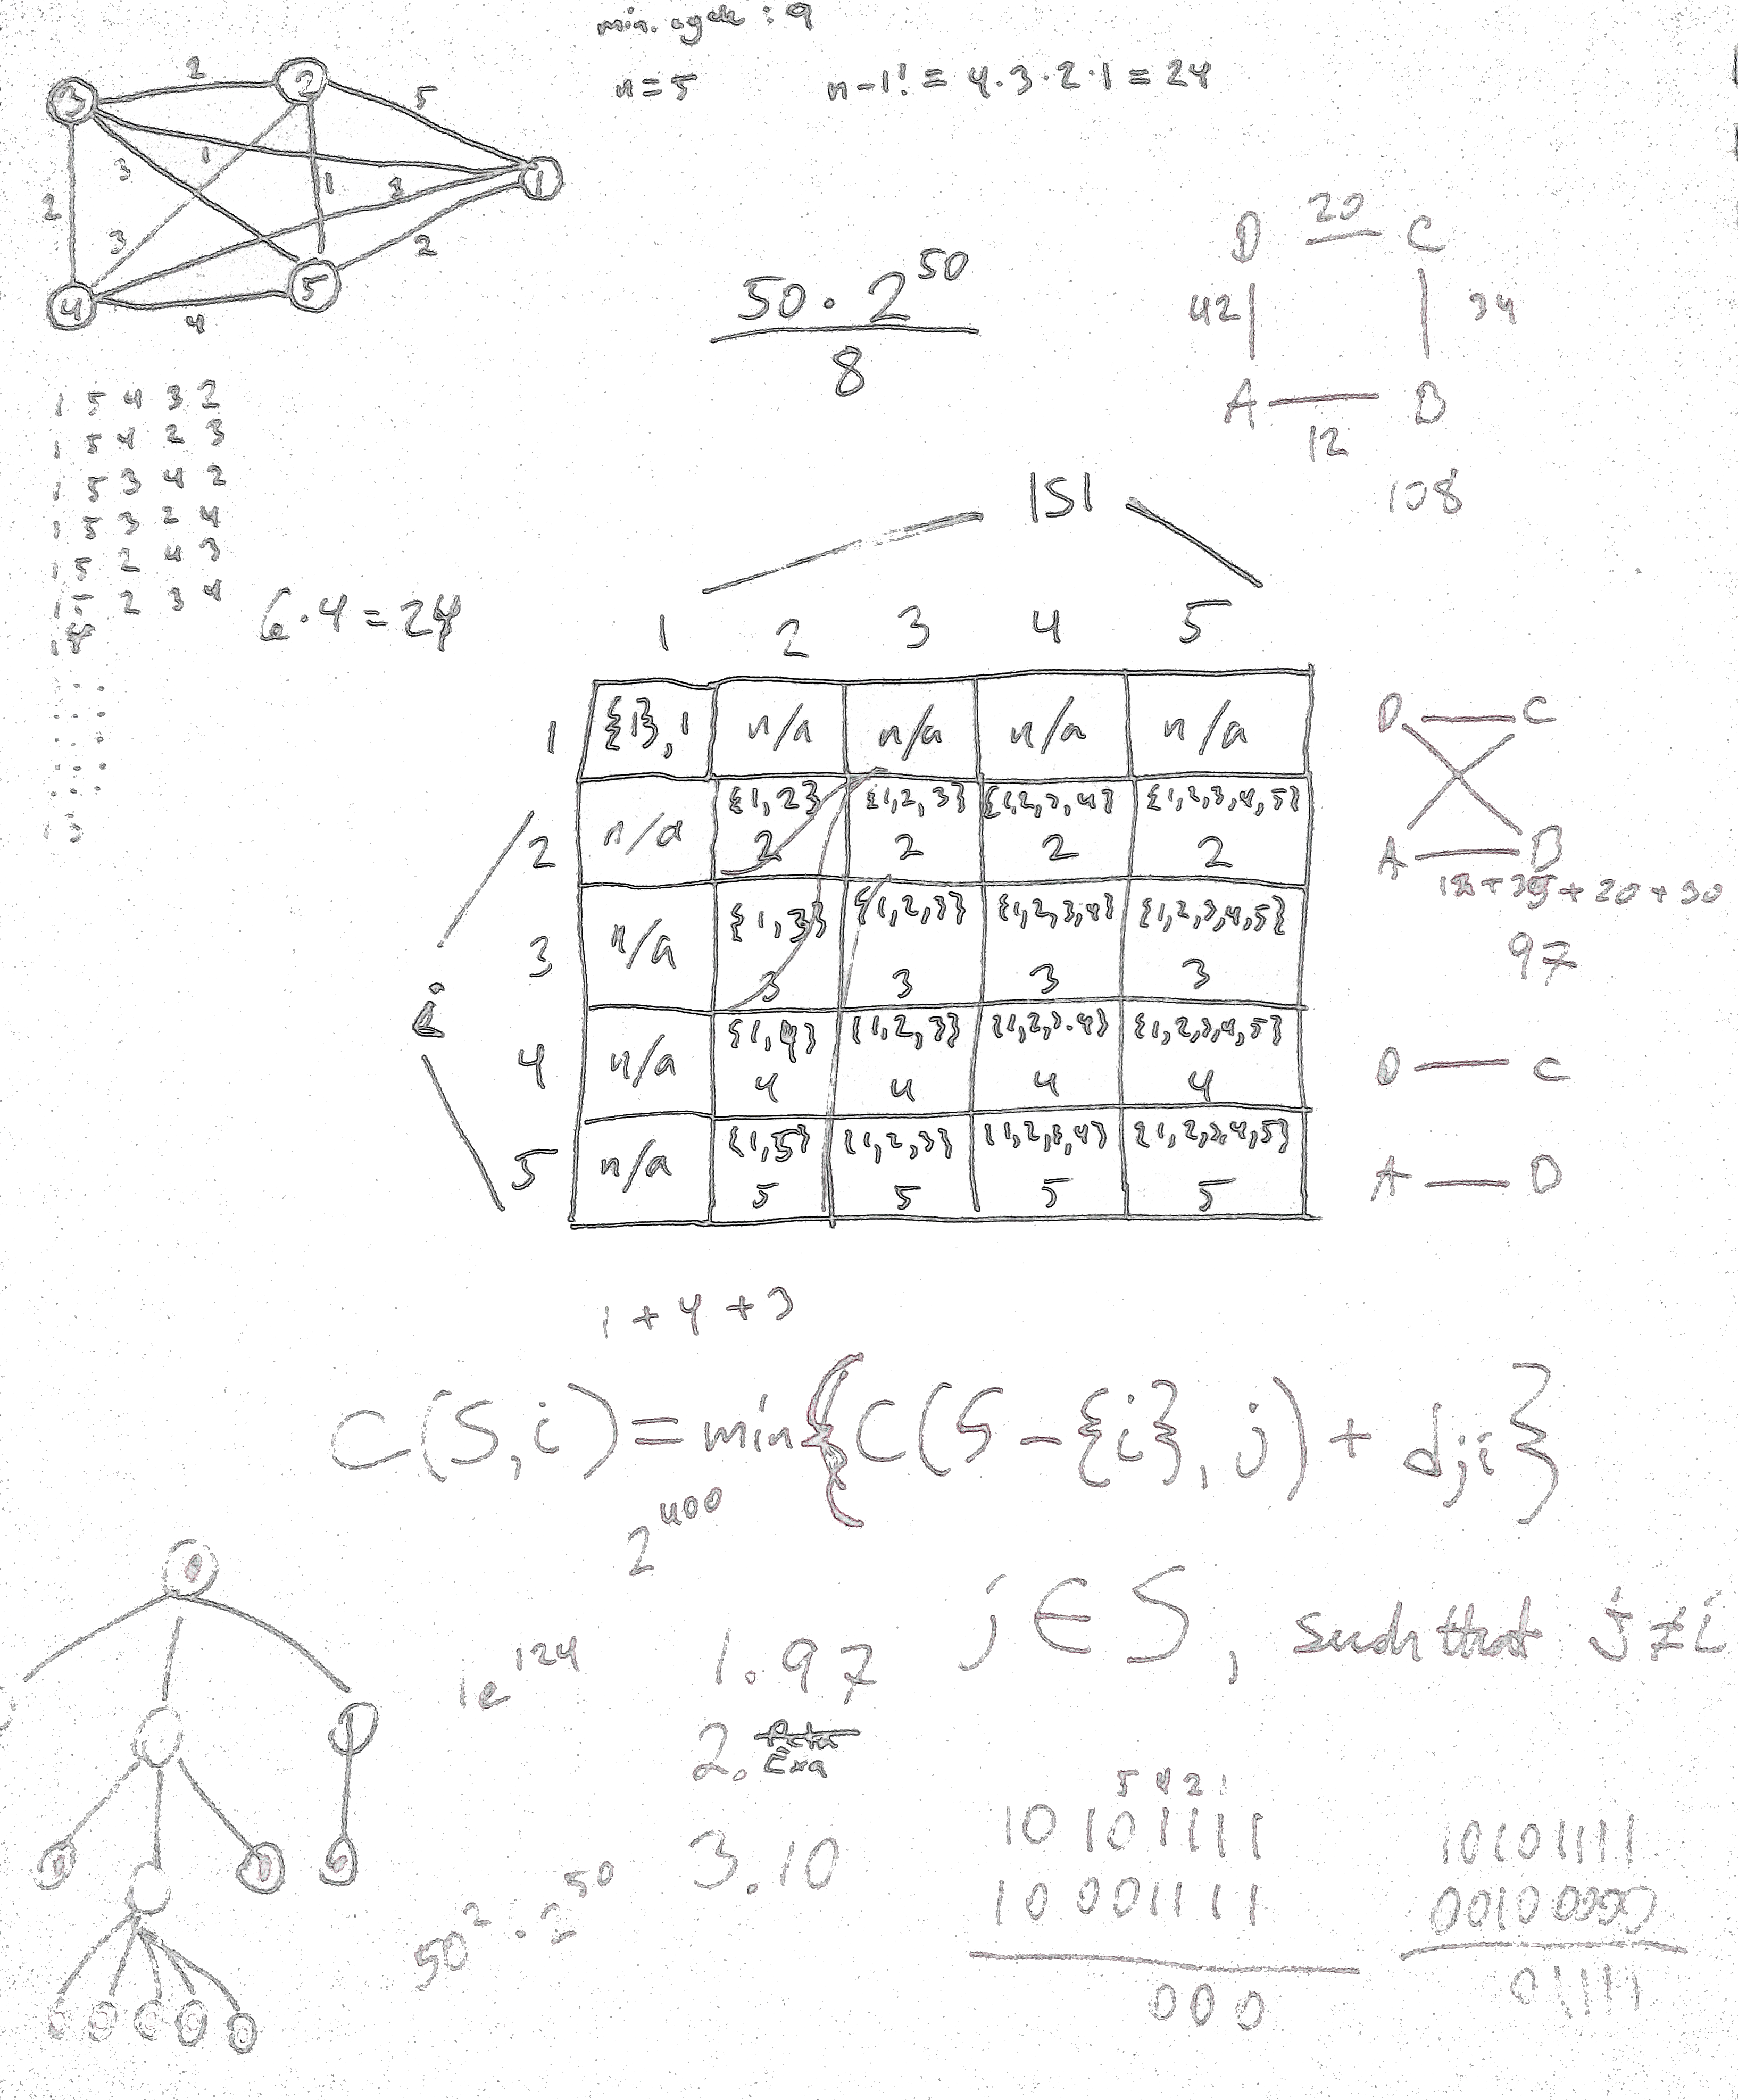 min. cycle : 9
n=5
n-1! = 4·3·2·1 = 24
3 2 2 5
1 3 1 3 1
2 3 2
4 4 5
50·2^50
8
D 20 C
42 34
A B
12
108
1 5 4 3 2
1 5 4 2 3
1 5 3 4 2
1 5 3 2 4
1 5 2 4 3
1 5 2 3 4
1 4
1 3
6·4=24
|S|
1 2 3 4 5
1 {1},1 n/a n/a n/a n/a
2 n/a {1,2} 2 {1,2,3} 2 {1,2,3,4} 2 {1,2,3,4,5} 2
3 n/a {1,3} 3 {1,2,3} 3 {1,2,3,4} 3 {1,2,3,4,5} 3
i
4 n/a {1,4} 4 {1,2,3} 4 {1,2,3,4} 4 {1,2,3,4,5} 4
5 n/a {1,5} 5 {1,2,3} 5 {1,2,3,4} 5 {1,2,3,4,5} 5
D C
A B
+ 20 + 30
97
D C
A D
1+4+3
C(S,i)=min{C(S-{i},j)+dji}
2^400
j∈S, such that j≠i
1e^124
1.97
2. Exa
3.10
50²·2^50
5 4 2 1
10 101111
10 001111
000
10101111
0010 0000
01111